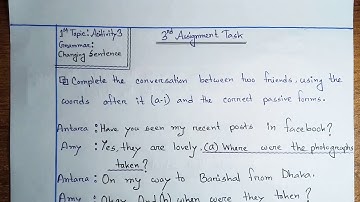 1st Topic: Activity 3
Grammar:
Changing Sentence
3rd Assignment Task
Complete the conversation between two friends, using the
words after it (a-i) and the correct passive forms.
Antara: Have you seen my recent posts in facebook?
Amy: Yes, they are lovely. (a) Where were the photographs
taken?
Antara: On my way to Barishal from Dhaka.
Amy: Okay. And (b) when were they taken?